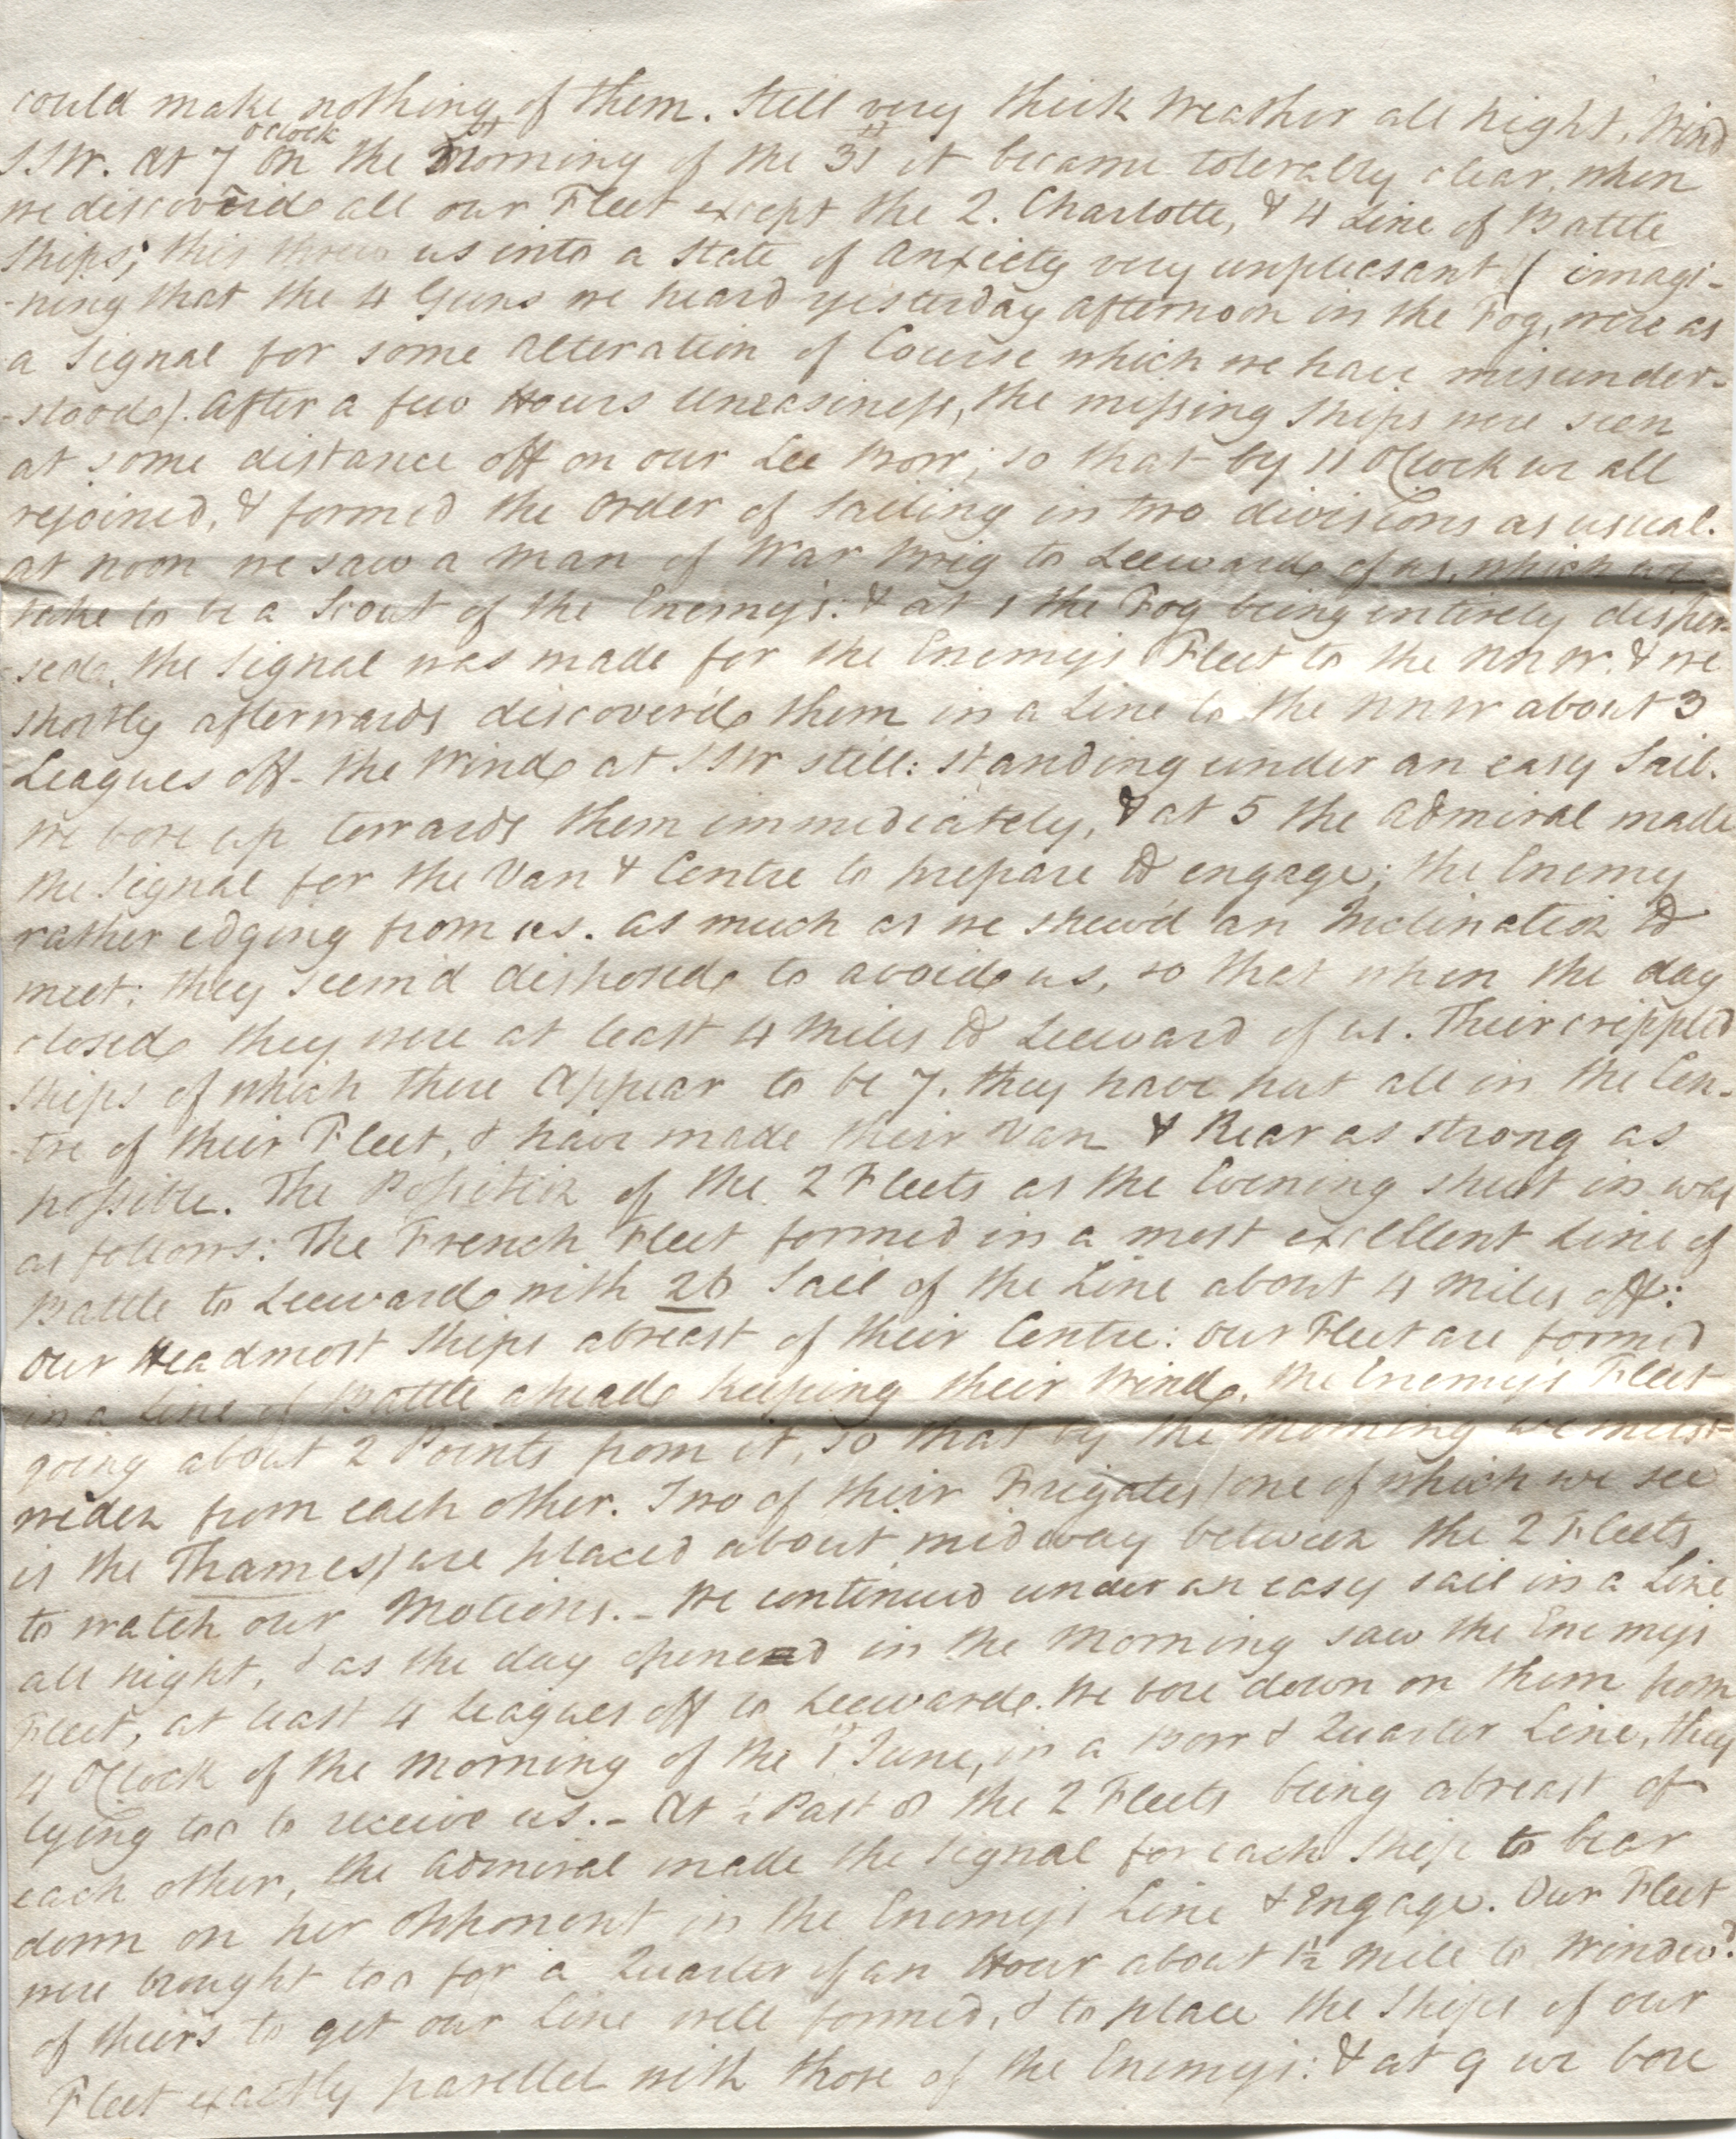 could make nothing of them. Still very thick Weather all Night, Wind
SSW. at 7 oClock on the Morning of the 31st it became tolerably clear, when
we discover'd all our Fleet except the 2. Charlotte, & 4 Line of Battle
Ships; this threw us into a State of Anxiety very unpleasant (imagi-
-ning that the 4 Guns we heard yesterday afternoon in the Fog, were as
a Signal for some Alteration of Course which we have misunder-
-stood). After a few Hours Uneasiness, the missing Ships were seen
at some distance off on our Lee Bow; so that by 11 OClock we all
rejoined, & formed the Order of Sailing in two divisions as usual.
at noon we saw a Man of War Brig to Leeward of us, which we
take to be a Scout of the Enemy's: & at 1 the Fog being entirely disper-
-sed, the Signal was made for the Enemy's Fleet to the NNW. & we
shortly afterwards discover'd them in a Line to the NNW about 3
Leagues off - the Wind at SSW still: standing under an easy Sail.
We bore up towards them immediately, & at 5 the Admiral made
the Signal for the Van & Centre to prepare to engage; the Enemy
rather edging from us. as much as we shew'd an Inclination to
meet: they seem'd disposed to avoid us, so that when the day
closed they were at least 4 Miles to Leeward of us. Their crippled
Ships of which there Appear to be 7. they have put all in the Cen-
-tre of their Fleet, & have made their Van & Rear as strong as
possible. The Position of the 2 Fleets as the Evening shut in was
as follows: The French Fleet formed in a most excellent Line of
Battle to Leeward with 26 Sail of the Line about 4 Miles off:
Our Headmost Ships abreast of their Centre: Our Fleet are formed
in a Line of Battle ahead keeping their Wind, the Enemy's Fleet
going about 2 Points from it, so that by the Morning we must
widen from each other. Two of their Frigates (one of which we see
is the Thames) are placed about midway between the 2 Fleets
to watch our Motions. - We continued under an easy sail in a Line
all night, & as the day opened in the Morning saw the Enemys
Fleet, at least 4 leagues off to Leeward. We bore down on them from
4 OClock of the Morning of the 1st June, in a Bow & Quarter Line, they
lying too to receive us. - At ½ Past 8 the 2 Fleets being abreast of
each other, the Admiral made the Signal for each Ship to bear
down on her Opponent in the Enemy's Line & Engage. Our Fleet
were brought too for a Quarter of an Hour about 1½ Mile to Windwd.
of theirs to get our Line well formed, & to place the Ships of our
Fleet exactly parellel with those of the Enemys: & at 9 we bore